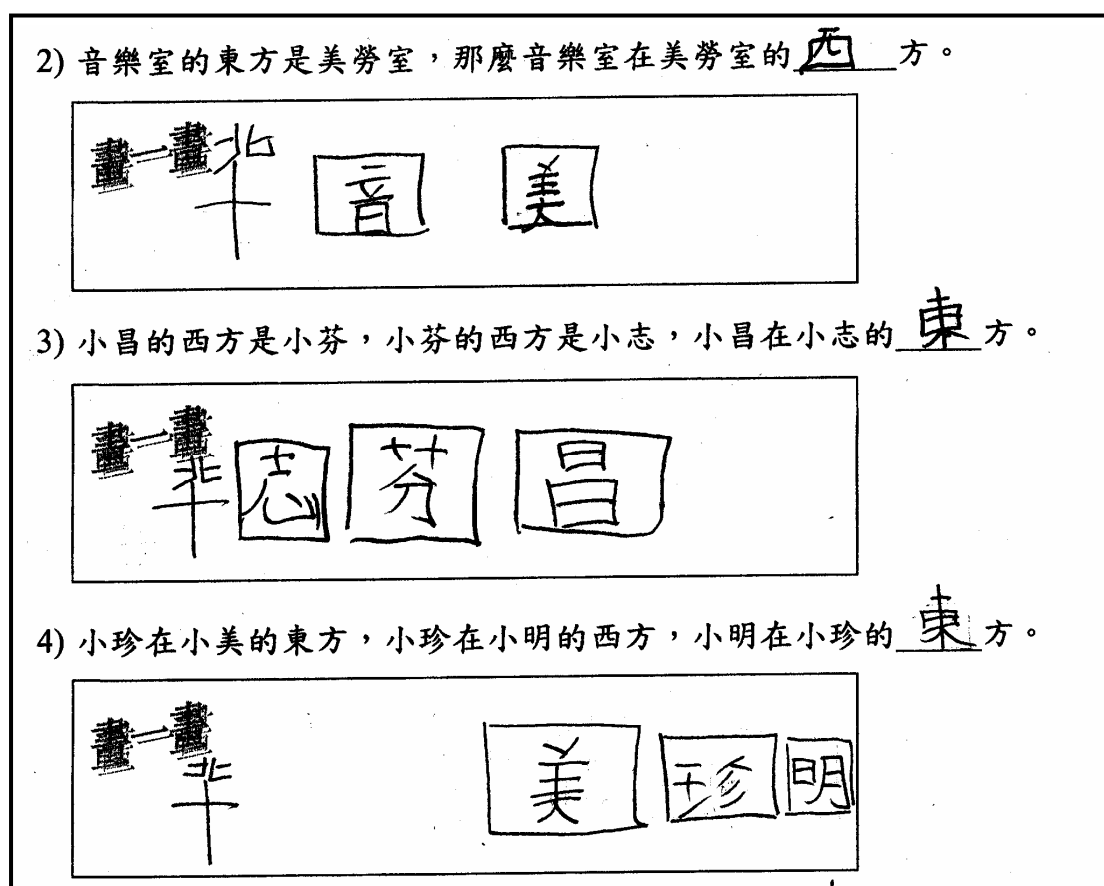 2) 音樂室的東方是美勞室,那麼音樂室在美勞室的西方。
畫一畫 北 音 美
3) 小昌的西方是小芬,小芬的西方是小志,小昌在小志的東方。
畫一畫 北 志 芬 昌
4) 小珍在小美的東方,小珍在小明的西方,小明在小珍的東方。
畫一畫 北 美 珍 明